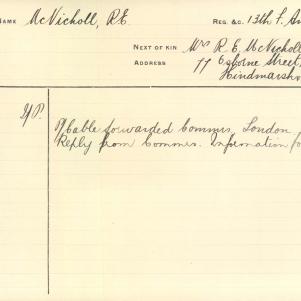 NAME McNicholl, R.E. REG. &C. 13th F. Am
NEXT OF KIN Mrs R. E. McNicholl
ADDRESS 77 Osborne Street,
Hindmarsh
Cable forwarded Commrs, London
Reply from Commrs. Information